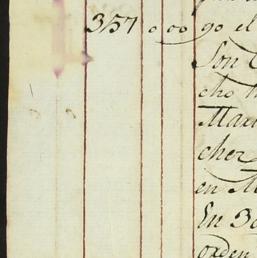 357 0 00 go el
Son
cho
Mar
cher
en M
En 30
orden